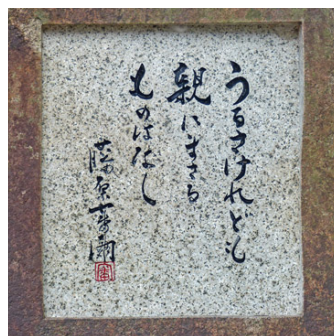 うるさけれども
親にまさる
ものはなし
藤原